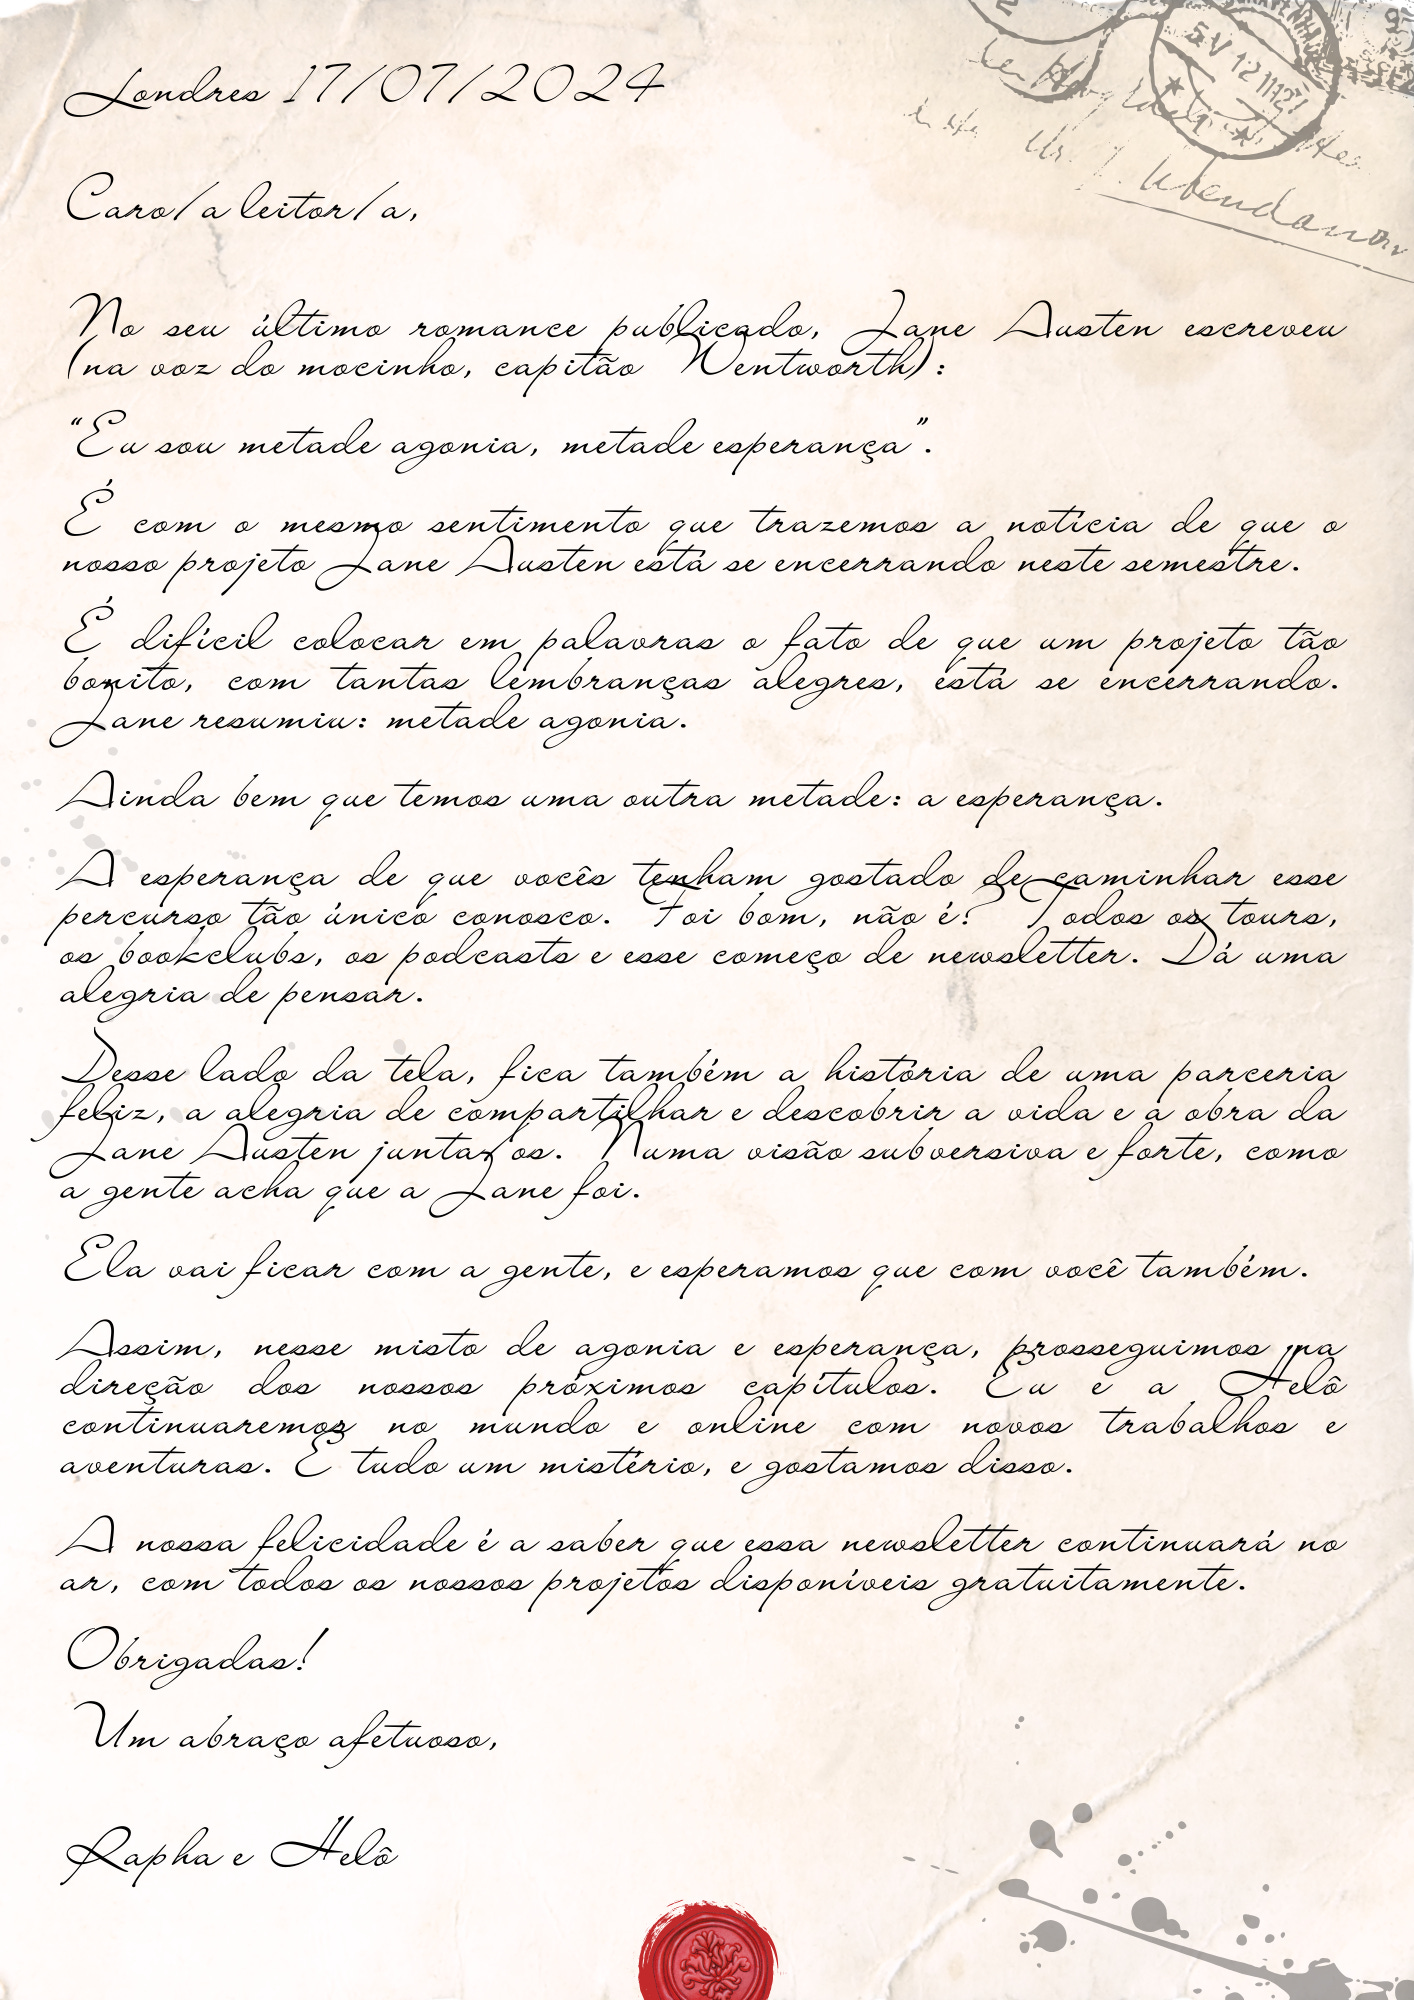 Londres 17/07/2024
5.V 12
Caro/a leitor/a,
No seu último romance publicado, Jane Austen escreveu
(na voz do mocinho, capitão Wentworth):
“Eu sou metade agonia, metade esperança”.
É com o mesmo sentimento que trazemos a notícia de que o
nosso projeto Jane Austen está se encerrando neste semestre.
É difícil colocar em palavras o fato de que um projeto tão
bonito, com tantas lembranças alegres, está se encerrando.
Jane resumiu: metade agonia.
Ainda bem que temos uma outra metade: a esperança.
A esperança de que vocês tenham gostado de caminhar esse
percurso tão único conosco. Foi bom, não é? Todos os tours,
os bookclubs, os podcasts e esse começo de newsletter. Dá uma
alegria de pensar.
Desse lado da tela, fica também a história de uma parceria
feliz, a alegria de compartilhar e descobrir a vida e a obra da
Jane Austen junta/os. Numa visão subversiva e forte, como
a gente acha que a Jane foi.
Ela vai ficar com a gente, e esperamos que com você também.
Assim, nesse misto de agonia e esperança, prosseguimos na
direção dos nossos próximos capítulos. Eu e a Helô
continuaremos no mundo e online com novos trabalhos e
aventuras. É tudo um mistério, e gostamos disso.
A nossa felicidade é a saber que essa newsletter continuará no
ar, com todos os nossos projetos disponíveis gratuitamente.
Obrigadas!
Um abraço afetuoso,
Rapha e Helô